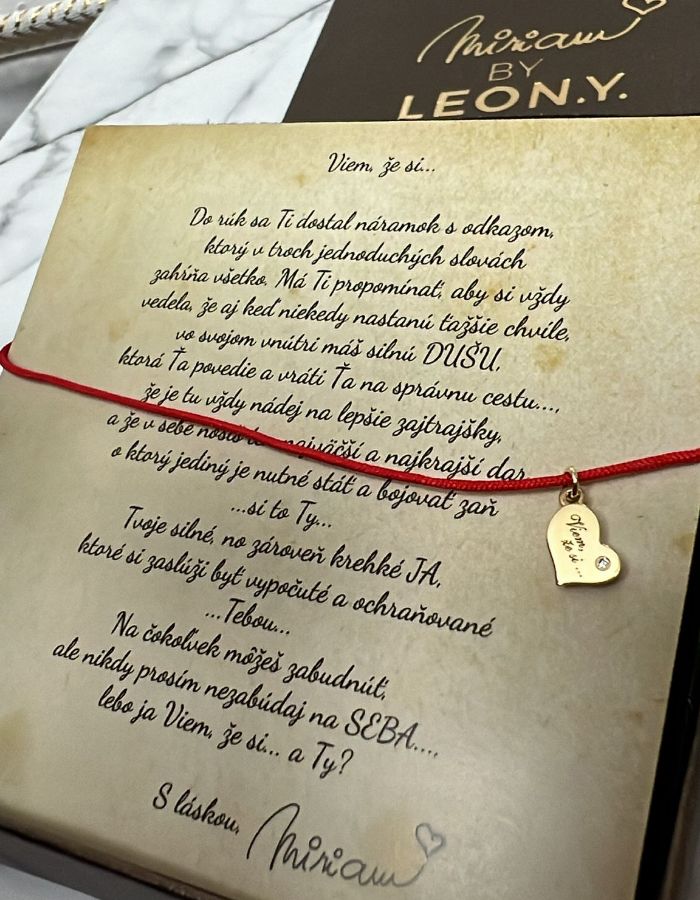 Miriam
BY
LEON.Y.
Viem, že si...
Do rúk sa Ti dostal náramok s odkazom,
ktorý v troch jednoduchých slovách
zahŕňa všetko. Má Ti propomínať, aby si vždy
vedela, že aj keď niekedy nastanú ťažšie chvíle,
vo svojom vnútri máš silnú DUŠU,
ktorá Ťa povedie a vráti Ťa na správnu cestu....,
že je tu vždy nádej na lepšie zajtrajšky,
a že v sebe nosíš najväčší a najkrajší dar,
o ktorý jediný je nutné stáť a bojovať zaň
...si to Ty...
Tvoje silné, no zároveň krehké JA,
ktoré si zaslúži byť vypočuté a ochraňované
...Tebou...
Na čokoľvek môžeš zabudnúť,
ale nikdy prosím nezabúdaj na SEBA....,
lebo ja Viem, že si... a Ty?
S láskou,
Miriam
Viem,
že si ...